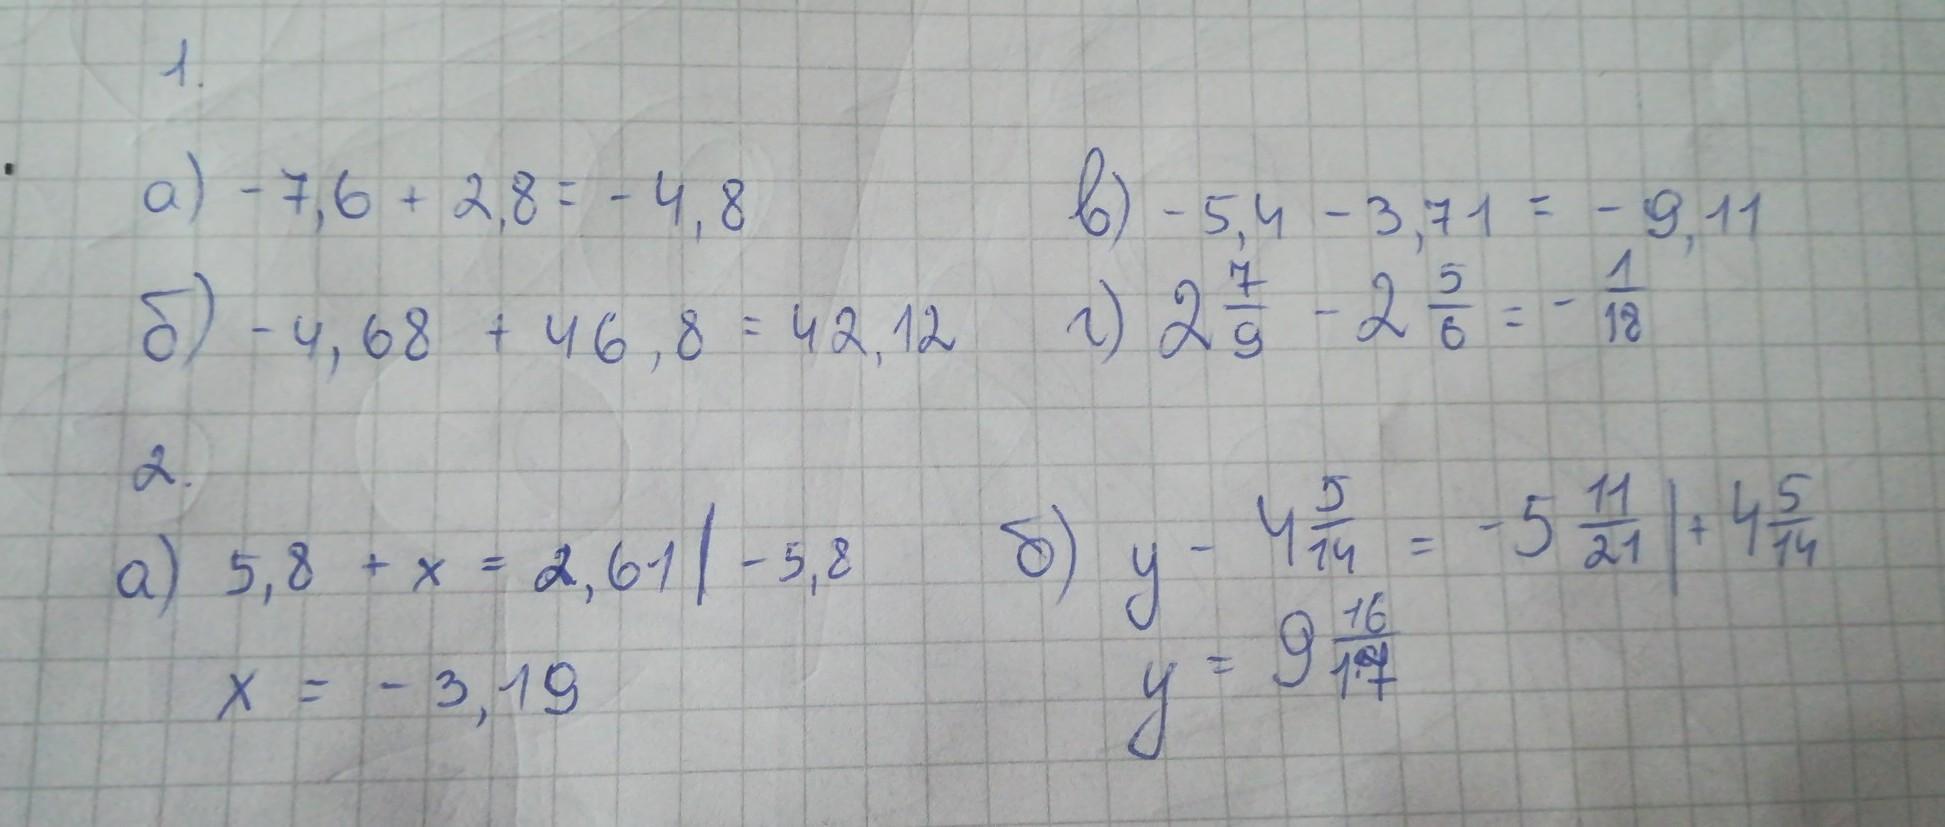 1.
а) - 7,6 + 2,8 = - 4,8
б) - 4,68 + 46,8 = 42,12
в) - 5,4 - 3,71 = - 9,11
г) 2 7/9 - 2 5/6 = - 1/18
2.
а) 5,8 + x = 2,61 | - 5,8
x = - 3,19
б) y - 4 5/14 = - 5 11/21 | + 4 5/14
y = 9 16/17